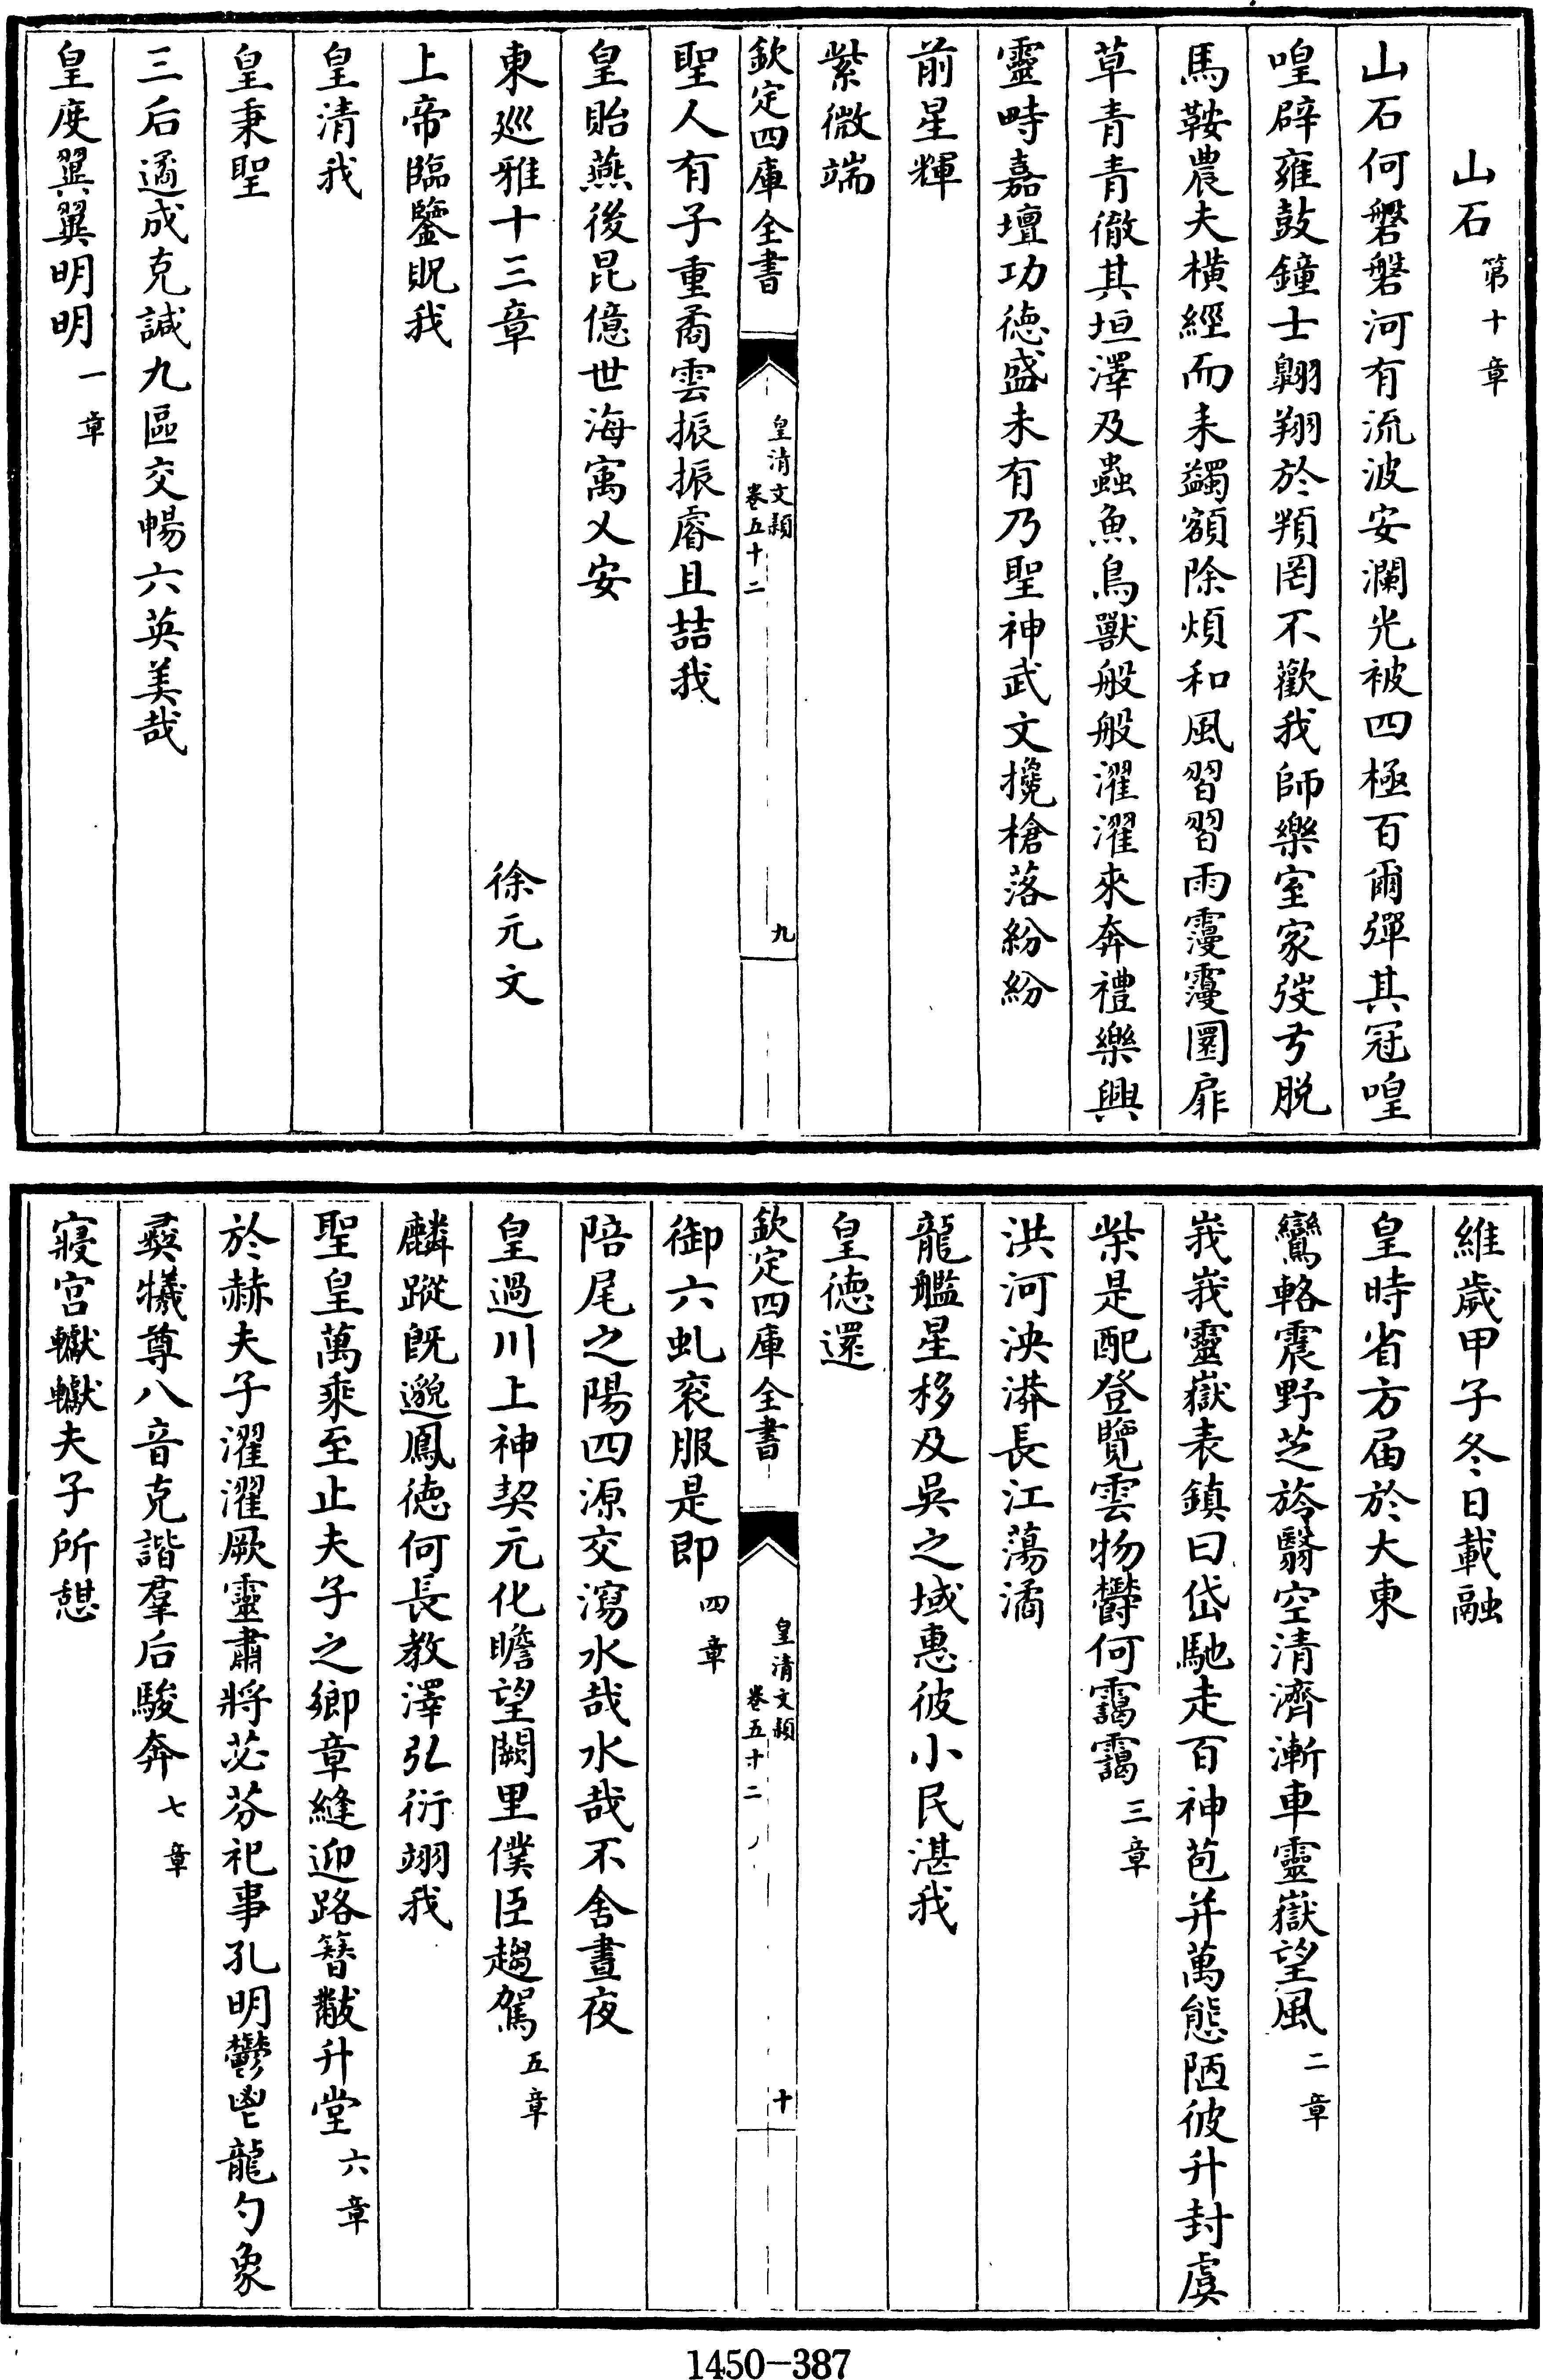 山石第十章
山石何磐磐河有流波安瀾光被四極百爾彈其冠喤
喤辟雍鼓鐘士翺翔於頖罔不歡我師樂室家弢弓脱
馬鞍農夫横經而耒蠲額除煩和風習習雨靀靀圜扉
草青青徹其垣澤及蟲魚鳥獸般般濯濯來奔禮樂興
靈畤嘉壇功徳盛未有乃聖神武文攙槍落紛紛
前星輝
紫微端
欽定四庫全書
皇清文穎
卷五十二
九
聖人有子重矞雲振振睿且喆我
皇貽燕後昆億世海寓乂安
東廵雅十三章 徐元文
上帝臨鑒貺我
皇清我
皇秉聖
三后遹成克諴九區交暢六英美哉
皇度翼翼明明一章
維歲甲子冬日載融
皇時省方届於大東
鸞輅震野芝旍翳空清濟漸車靈嶽望風二章
峩峩靈嶽表鎮曰岱馳走百神苞并萬態陋彼升封虞
柴是配登覽雲物欝何靄靄三章
洪河泱漭長江蕩潏
龍艦星移及吳之域惠彼小民湛我
皇徳還
欽定四庫全書
皇清文穎
卷五十二
十
御六虬衮服是即四章
陪尾之陽四源交瀉水哉水哉不舍晝夜
皇過川上神契元化瞻望闕里僕臣趨駕五章
麟蹤既邈鳳徳何長教澤弘衍翊我
聖皇萬乘至止夫子之鄉章縫迎路簪黻升堂六章
於赫夫子濯濯厥靈肅將苾芬祀事孔明鬱鬯龍勺象
彛犧尊八音克諧羣后駿奔七章
寢宫轥轥夫子所憇
1450-387